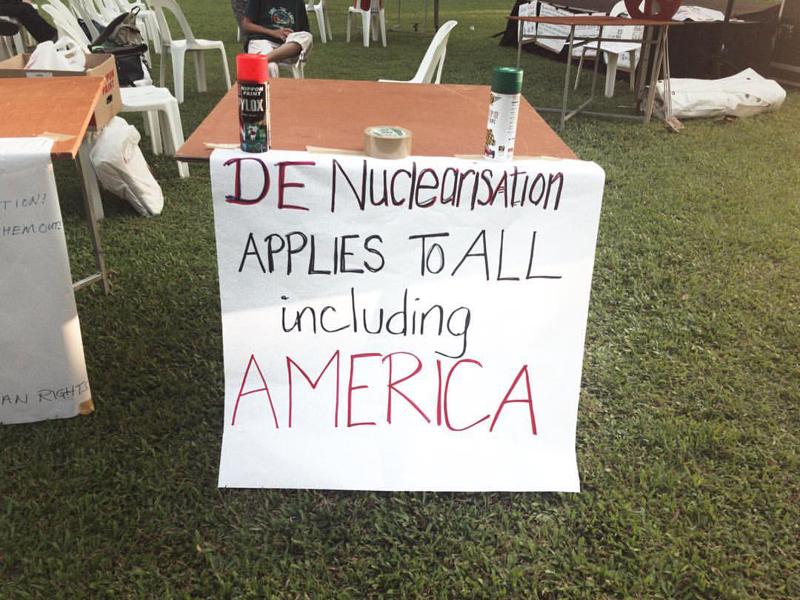 NIPPON
PAINT
PYLOX
DE NuclearisATion
APPLIES To ALL
including
AMERICA
TION!
HEM OUT!
AN RIGHTS